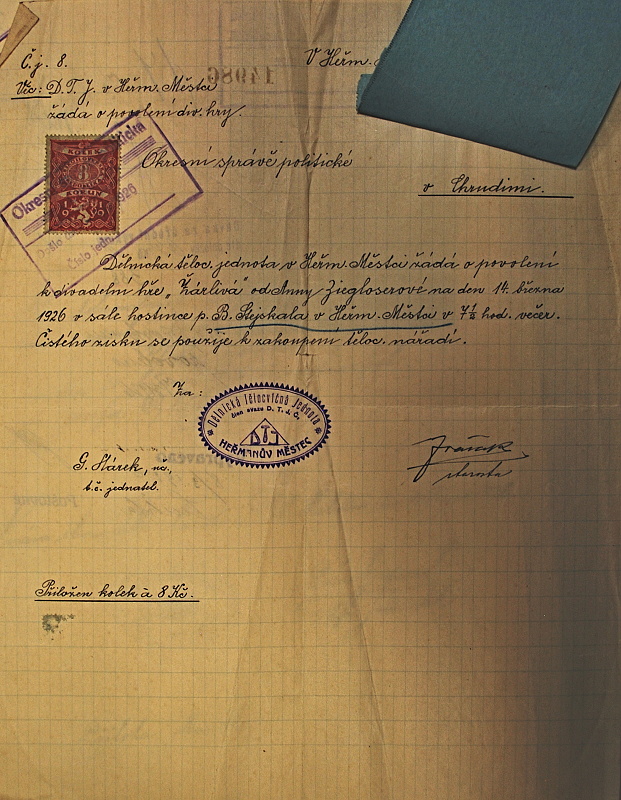 Č. j. 8.
V Heřm.
Věc: D. T. J. v Heřm. Městci
žádá o povolení div. hry.
Okresní správě politické
v Chrudimi.
Dělnická těloc. jednota v Heřm. Městci žádá o povolení
k divadelní hře „Žárlivá" od Anny Ziegloserové na den 14. března
1926 v sále hostince p. B. Stejskala v Heřm. Městci v 7½ hod. večer.
Čistého zisku se použije k zakoupení těloc. nářadí.
Za:
Dělnická tělocvičná jednota
člen svazu D. T. J. Č.
DTJ
HEŘMANŮV MĚSTEC
G. Stárek,
t. č. jednatel.
starosta
Přiložen kolek à 8 Kč.